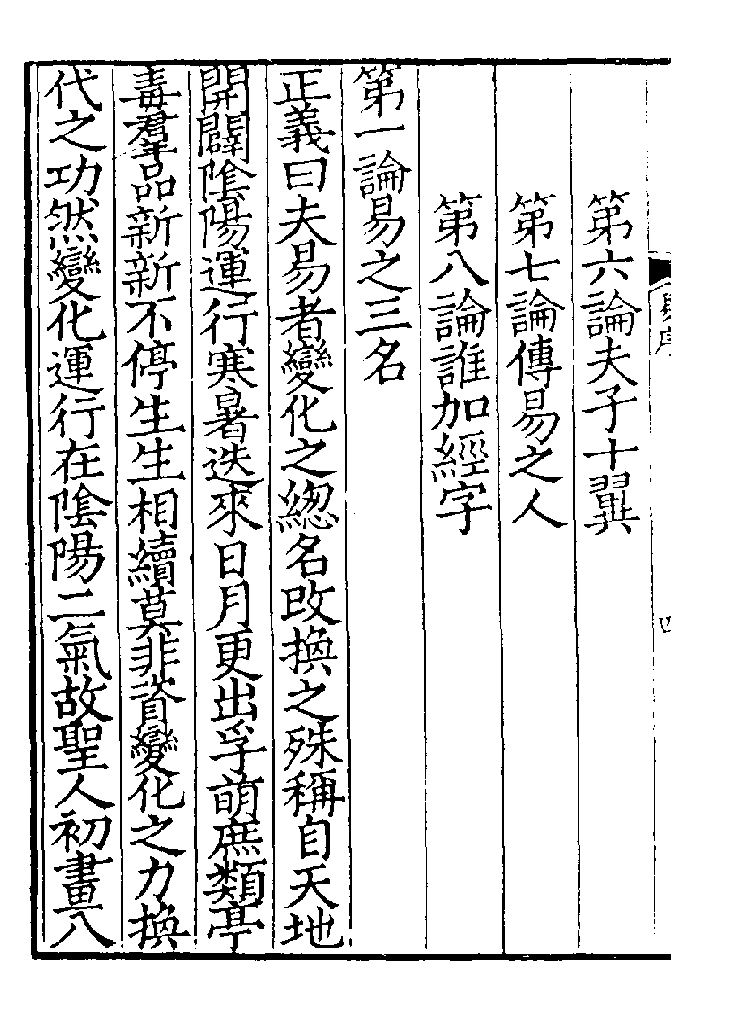 第六論夫子十翼
第七論傳易之人
第八論誰加經字
第一論易之三名
正義曰夫易者變化之緫名改換之殊稱自天地
開闢陰陽運行寒暑迭來日月更出孚萌庶類亭
毒羣品新新不停生生相續莫非資變化之力換
代之功然變化運行在陰陽二氣故聖人初畫八